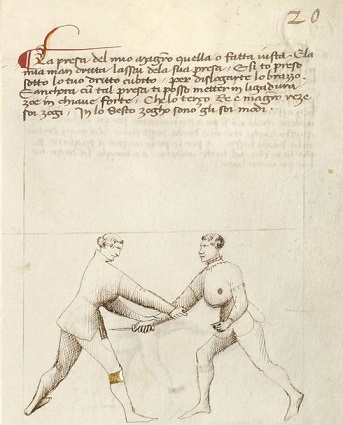 20
La presa del mio magistro quella o fatta iusta. E la
mia man dritta lassai dela sua presa. E si to preso
sotto lo tuo dritto cubito. per dislogarte lo brazzo.
E anchora cum tal presa ti posso metter in ligadura
zoe in chiave forte. Che lo terzo Re e magistro reze
soi zogi. In lo sesto zogho sono gli soi modi.